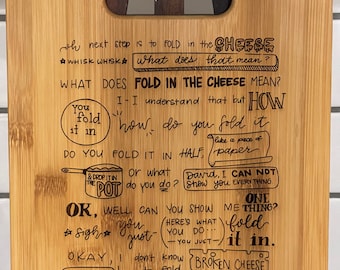 oh next step is to fold in the CHEESE
WHISK WHISK what does that mean?
WHAT DOES FOLD IN THE CHEESE MEAN?
you fold it in I - I understand that but HOW
how do you fold it
DO YOU FOLD IT IN HALF like a piece of paper
& DROP IT IN THE POT Or what do you do? David, I CAN NOT SHOW YOU EVERYTHING
OK, WELL CAN YOU SHOW ME ONE THING?
*sigh* you just HERE'S WHAT YOU DO... ...YOU JUST fold it in.
OKAY, I BROKEN CHEESE
don't